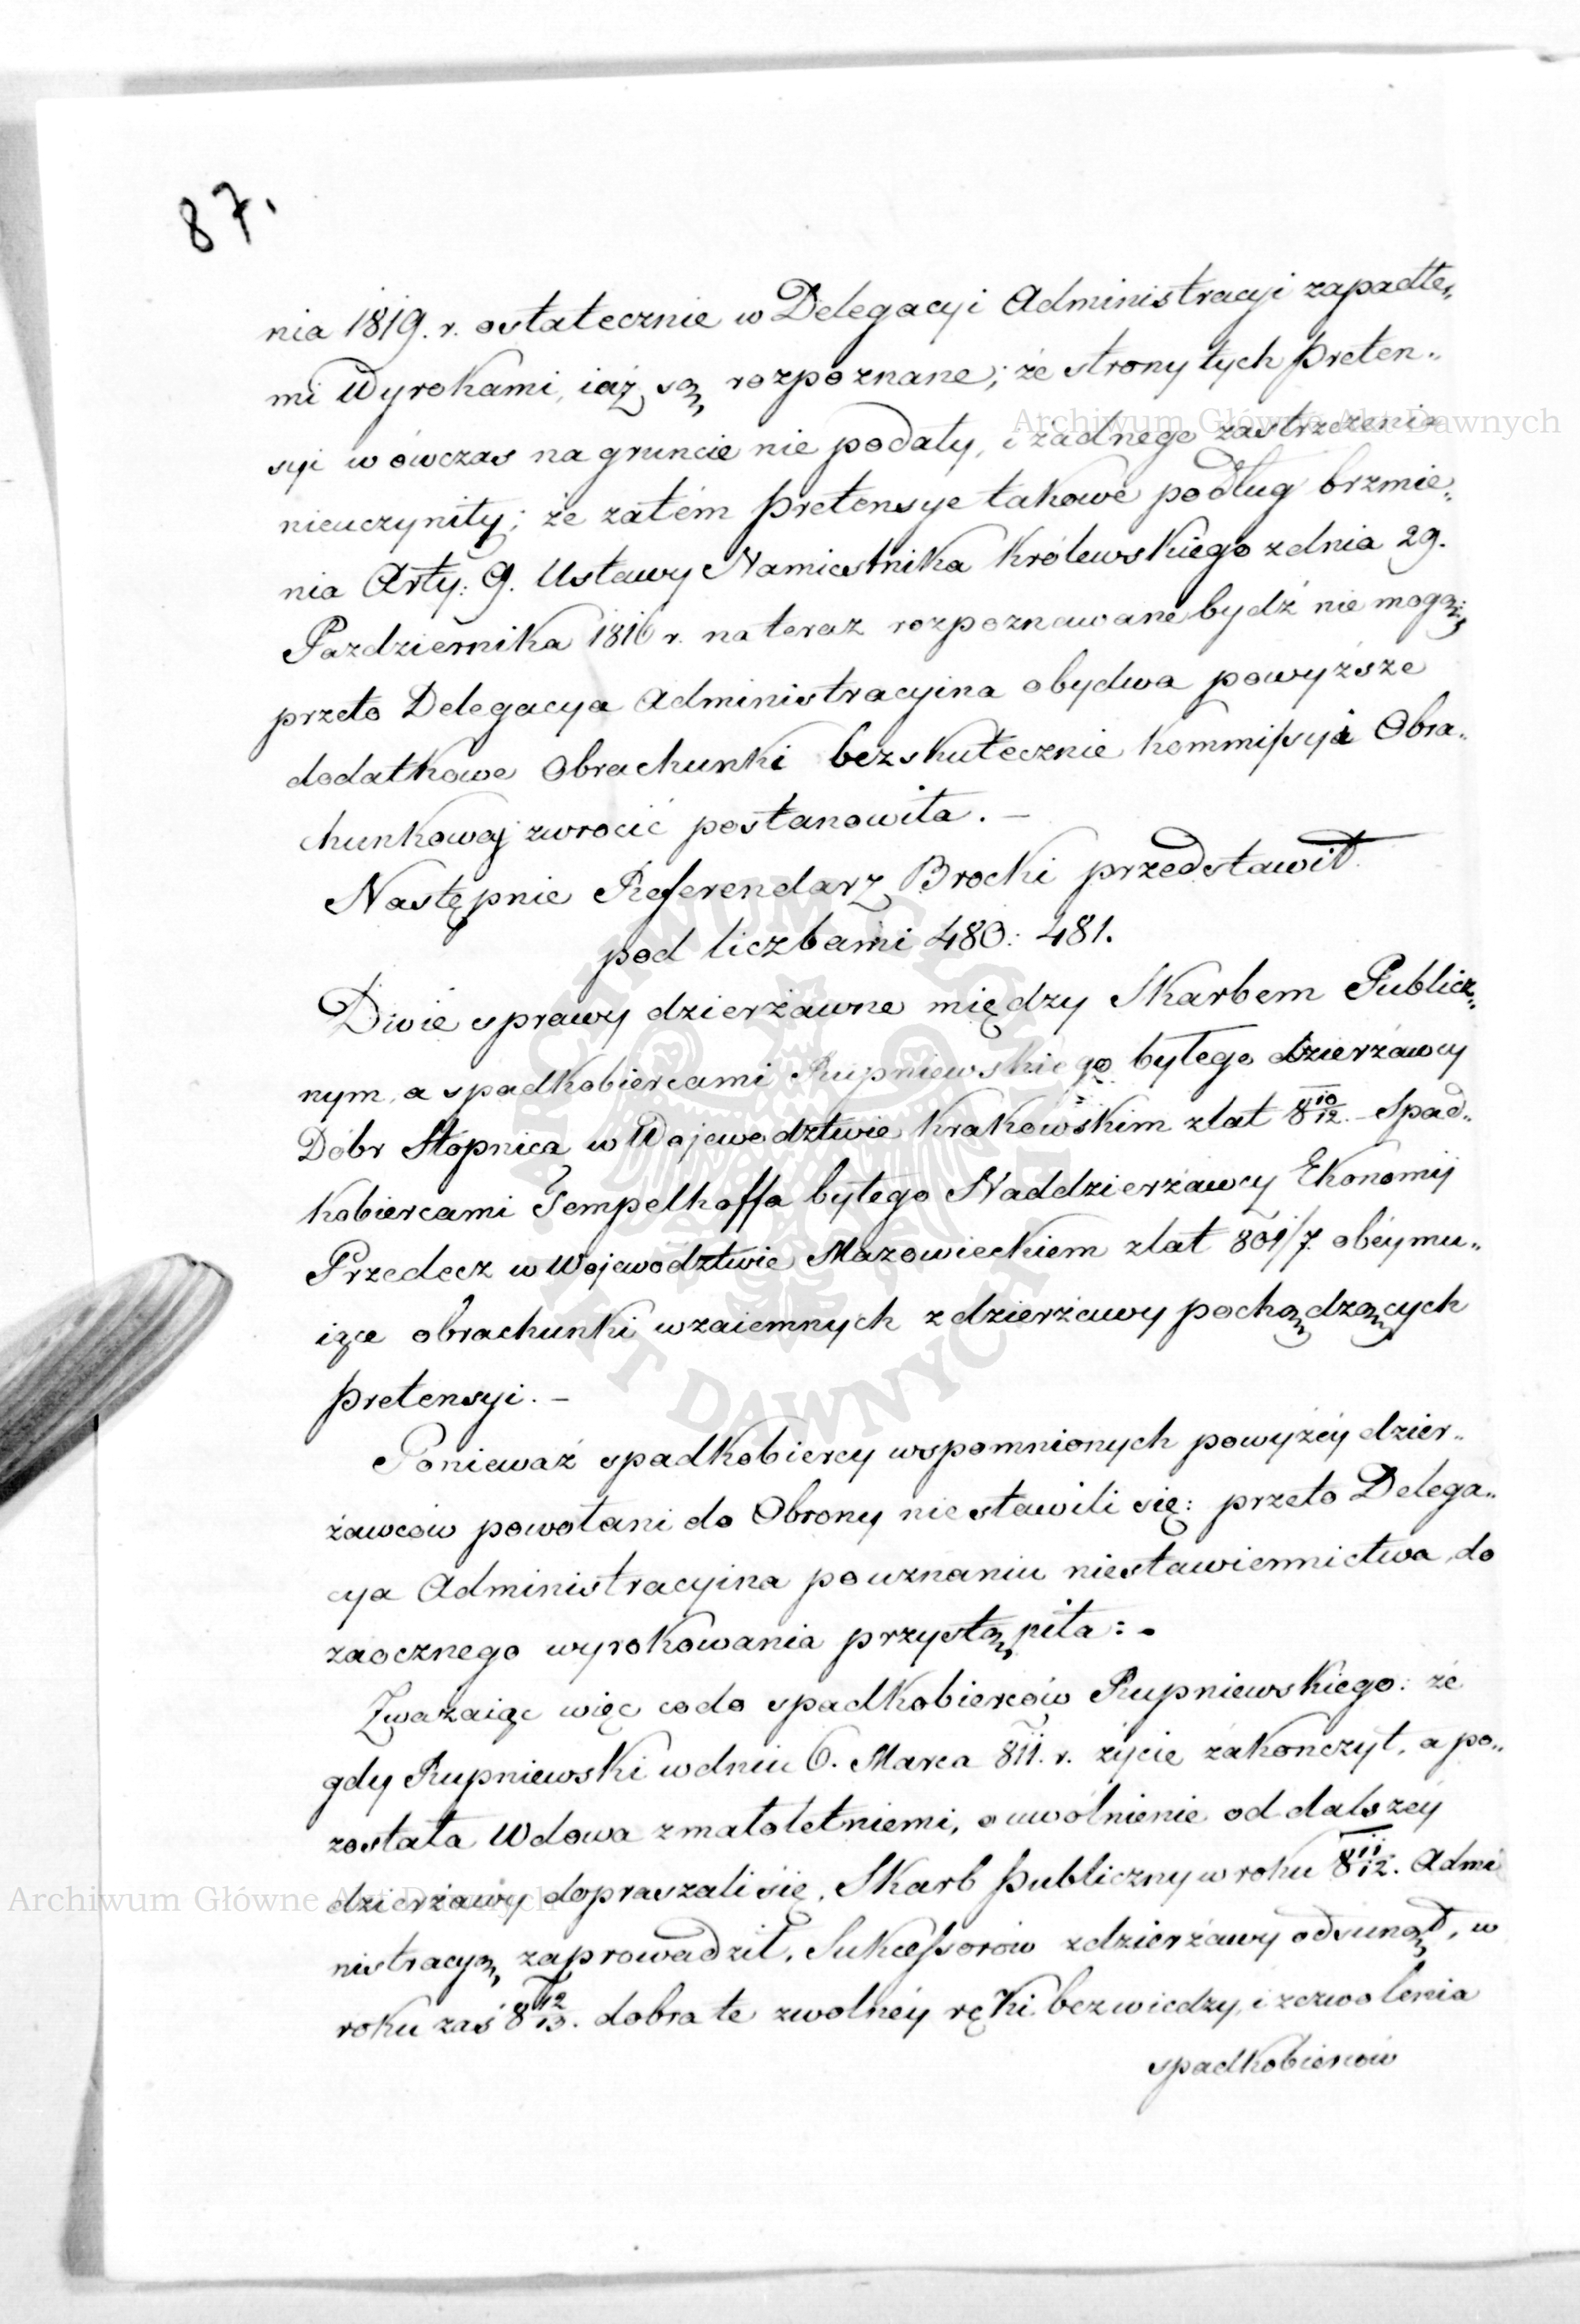 87.
nia 1819. r. ostatecznie w Delegacyi Administracyi zapadłe„
mi Wyrokami, iąż są rozpoznane; że strony tych preten„
syi wówczas na gruncie nie podały, i żadnego zastrzeżenia
nieuczyniły; że zatém pretensye takowe podług brzmie„
nia Arty: 9. Ustawy Namiestnika Królewskiego z dnia 29.
Pazdziernika 1816 r. na teraz rozpoznawane bydź nie mogą;
przeto Delegacya Administracyina obydwa powyższe
dodatkowe Obrachunki bezskutecznie Kommissyi Obra„
chunkowej zwrocić postanowiła. —
Następnie Referendarz Brocki przedstawił
pod liczbami 480: 481.
Dwie sprawy dzierżawne między Skarbem Publicz„
nym, a spadkobiercami Rupniewskiego byłego dzierżawcy
Dóbr Stopnica w Wojewodztwie Krakowskim z lat 8 10/12. – Spad„
kobiercami Tempelhoffa byłego Naddzierżawcy Ekonomij
Przedecz w Wojewodztwie Mazowieckiem z lat 801/7. obéymu„
iące obrachunki wzaiemnych z dzierżawy pochądzących
pretensyi. –
Ponieważ spadkobiercy wspomnionych powyżéy dzier„
żawców powołani do Obrony nie stawili się: przeto Delega„
cya Administracyina po uznaniu niestawiennictwa, do
zaocznego wyrokowania przystąpiła: -
Zważaiąc więc co do spadkobierców Rupniewskiego: że
gdy Rupniewski w dniu 6. Marca 811. r. życie zakończył, a po„
została Wdowa z małoletniemi, o uwólnienie od dalszéy
dzierżawy dopraszali się, Skarb publiczny w roku 8 11/12. Admi
nistracyą zaprowadził, Sukcessorów z dzierżawy odsunął, w
roku zaś 8 12/13. dobra te z wolnéy ręki bez wiedzy, i zezwolenia
spadkobierców
Archiwum Główne Akt Dawnych
Archiwum Główne Akt Dawnych
ARCHIWUM GŁÓWNE AKT DAWNYCH